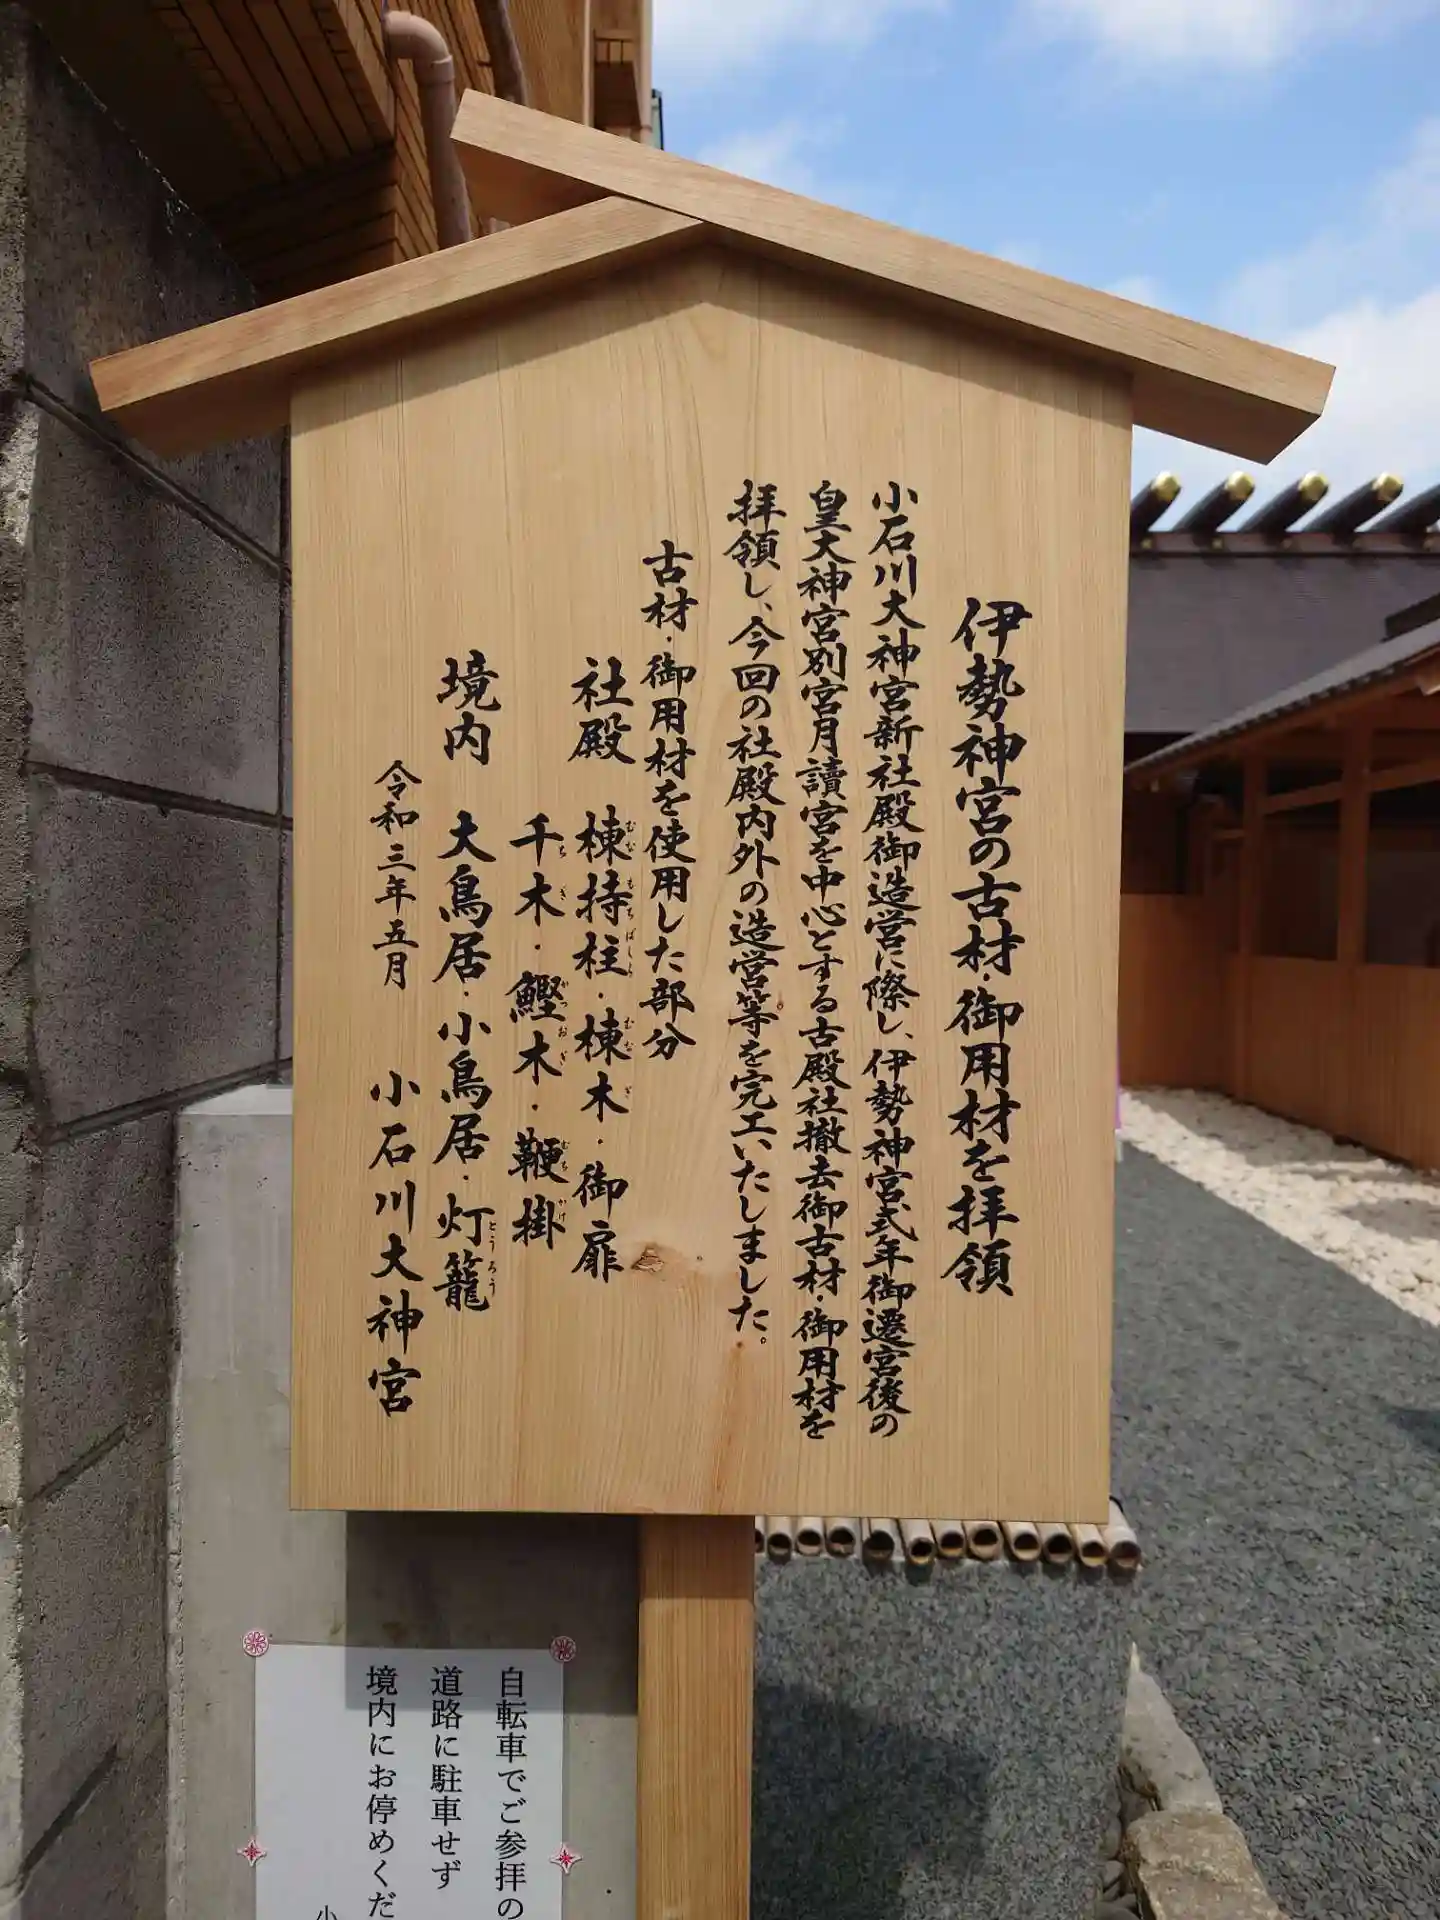 伊勢神宮の古材・御用材を拝領
小石川大神宮新社殿御造営に際し、伊勢神宮式年御遷宮後の
皇大神宮別宮月讀宮を中心とする古殿社撤去御古材・御用材を
拝領し、今回の社殿内外の造営等を完工いたしました。
古材・御用材を使用した部分
社殿 棟持柱・棟木・御扉
むなもちばしら むなぎ
千木・鰹木・鞭掛
ちぎ かつおぎ むちかけ
境内 大鳥居・小鳥居・灯籠
とうろう
令和三年五月 小石川大神宮
自転車でご参拝の
道路に駐車せず
境内にお停めくだ
小